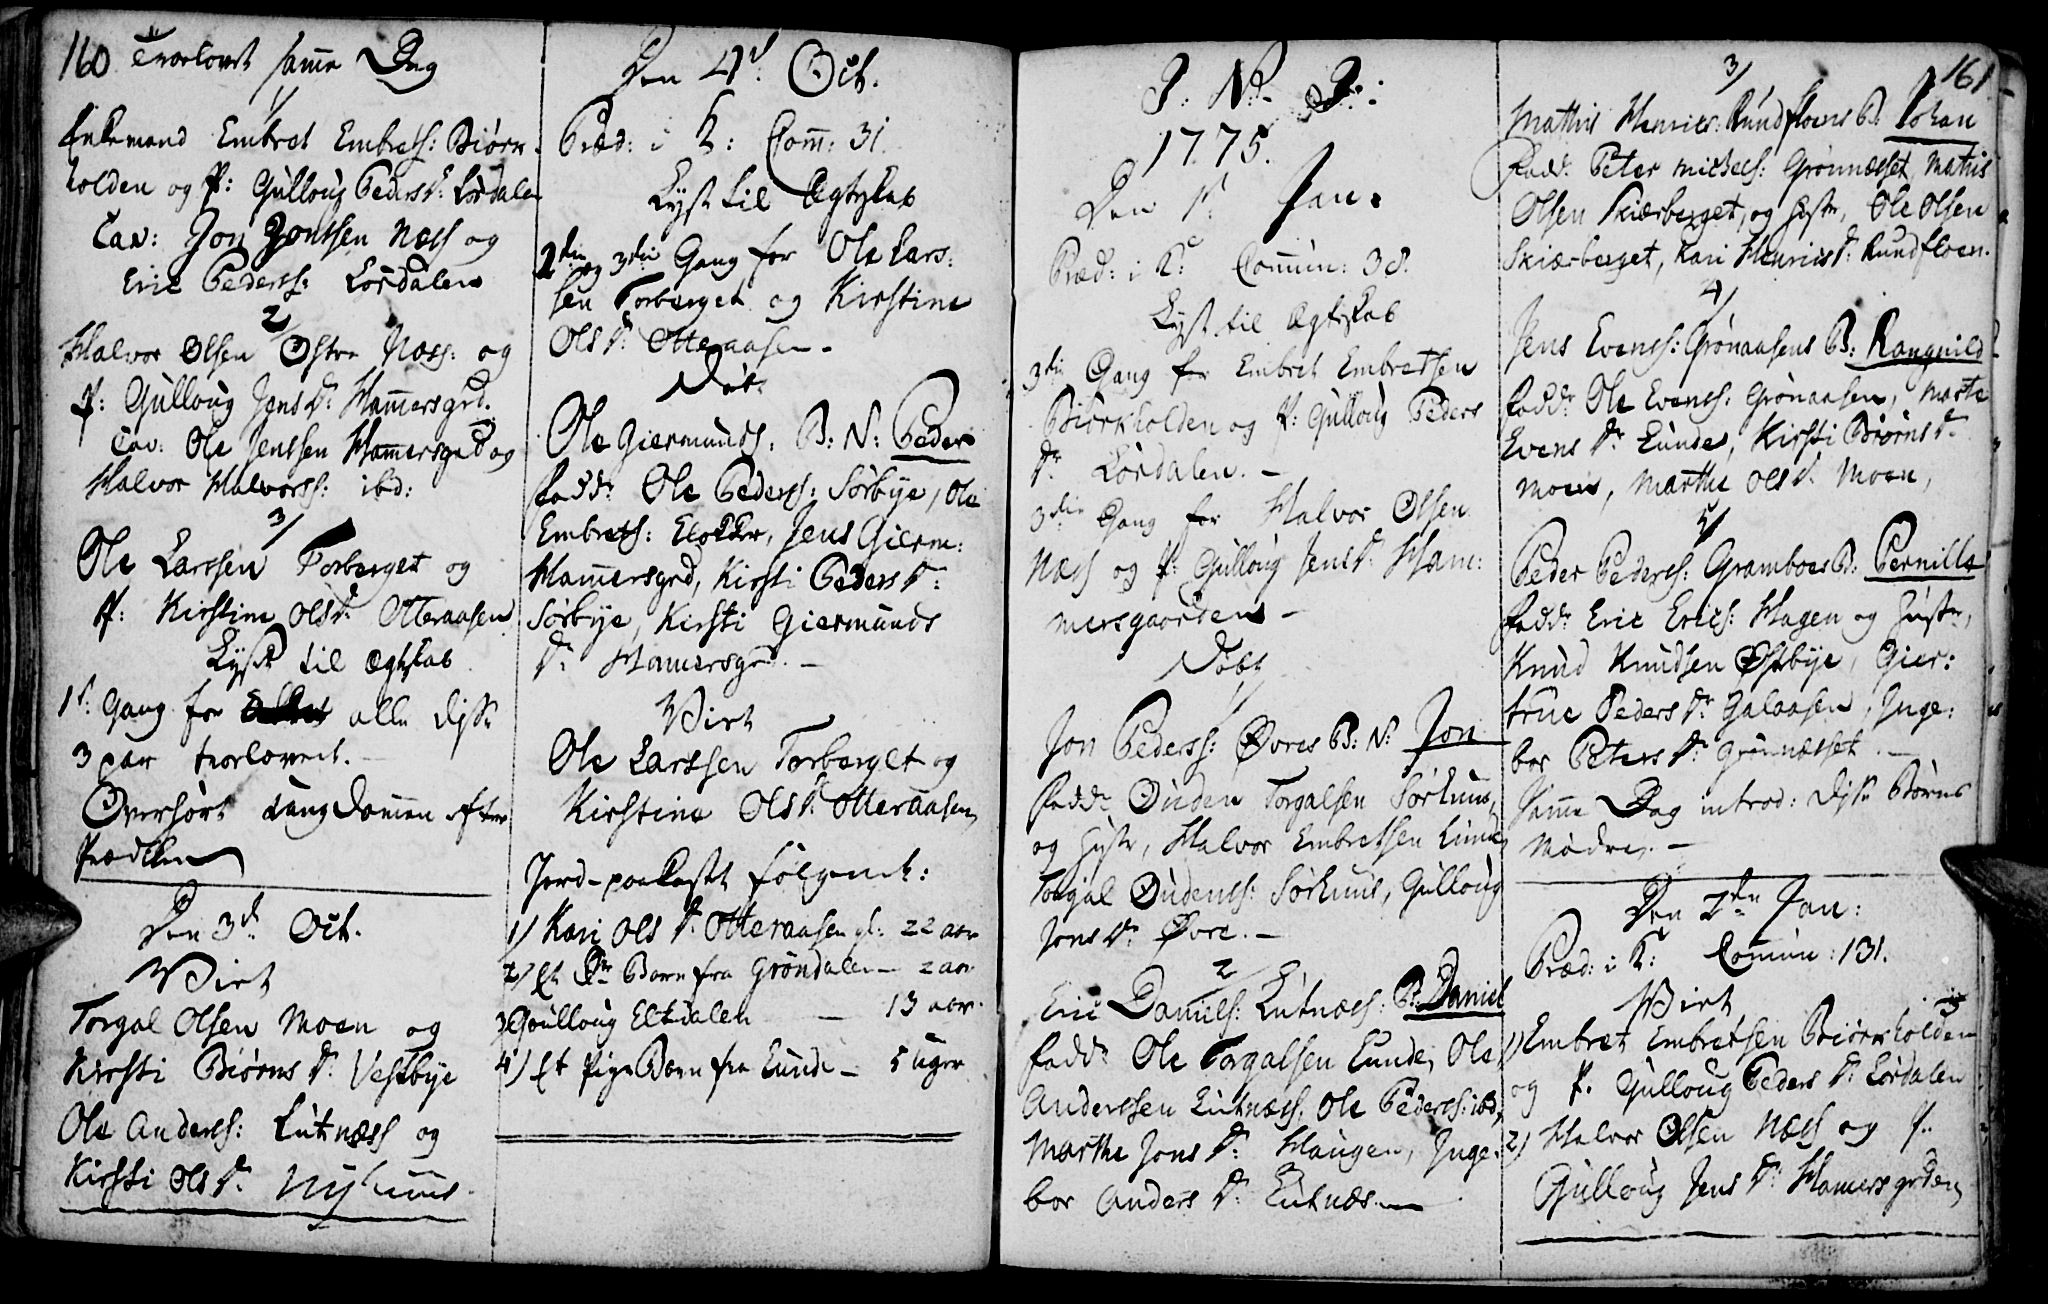 160 Trorlovet samme Dag
1/
Enkemand Embret Embrets: Biørn-
holden og P: Gulloug Peders Dr: Lørdalen
Cav: Jon Jontsen Næss og
Eric Peders: Lørdalen
2/
Halvor Olsen Østre Næss: og
P: Gulloug Jens Dr: Hammersgrd.
Cav: Ole Jenssen Hammersgrd og
Halvor Halvorss: ibd:
3/
Ole Larssen Torberget og
P: Kirstine Ols Dr: Otteraasen
Lyst til Ægtskab
1st: Gang for alle disse
3 par trorlovede.
Overhørt Ungdommen efter
Prædiken
Den 3d: Oct.
Viet
Torgal Olsen Moen og
Kirsti Biørns Dr: Vestbye
Ole Anderss: Lutnæss og
Kirsti Ols Dr: Nyhuus.
Den 4d: Oct.
Præd: i K: Com̄: 31.
Lyst til Ægtskab
2den og 3die Gang for Ole Lars:
sen Torberget og Kirstine
Ols Dr: Otteraasen.
Døbt
Ole Giermunds: B: N: Peder
Fadd: Ole Pederss: Sørbye, Ole
Embrets: Elokker, Jens Gierm:
Ham̄ersgrd, Kirsti Peders Dr:
Sørbye, Kirsti Giermunds
Dr: Ham̄ersgrd. -
Viet
Ole Larssen Torberget og
Kirstine Ols Dr: Otteraasen
Jord-paakastet følgende:
1) Kari Ols Dr: Otteraasen gl: 22 aar
2/ Et Barn fra Grøndalen - 2 aar
3) Gulloug Eltdalen - 13 aar.
4) Et Pige Barn fra Lunde - 5 Uger
J: N: J:
1775.
Den 1: Jan:
Præd: i K: Commun: 38.
Lyst til Ægteskab
3die Gang for Embret Embretsen
Biørkholden og P: Gulloug Peders
Dr: Lørdalen. -
3die Gang for Halvor Olsen
Næss og P: Gulloug Jens Dr: Ham:
mersgaarden -
Døbt
1/
Jon Pederss: Øvres B: N: Jon
Fadd: Ouden Torgalsen Sørhuus,
og Hustr, Halvor Embretsen Lunde
Torgal Oudenss: Sørhuus, Gulloug
Jons Dr: Øvre. -
2/
Eric Daniels: Lutnæs: B: Daniel
Fadd: Ole Torgalsen Lunde, Ole
Anderssen Lutnæss. Ole Pederss: ibd,
Marthe Jons Dr: Haugen, Inge:
bor Anders Dr: Lutnæs.
161.
3/
Mathis Henrics: Rundfloens B: Johan
Fadd: Peter Michels: Grønnæsset, Mathis
Olsen Skiærberget, og Hustr, Ole Olsen
Skiærberget, Kari Henrics Dr: Rundfloen.
4/
Jens Evenss: Grønaasens B: Rangnild
Fadd: Ole Evenss: Grønaasen, Marte
Evens Dr: Lunde, Kirsti Biørns Dr:
Moen, Marthe Ols Dr: Moen,
5/
Peder Pederss: Gramboes B: Pernille
Fadd: Eric Erics: Hagen og Hustr,
Knud Knudsen Østbye, Gier:
true Peders Dr: Galaasen, Inge:
bor Peters Dr: Grønnæsset. -
Samme Dag introd: disse Børns
Mødre. -
Den 2den Jan:
Præd: i K: Commun: 131.
Viet
1) Embret Embretsen Biørkholden
og P. Gulloug Peders Dr: Lørdalen
2) Halvor Olsen Næss og P.
Gulloug Jens Dr: Hamersgrden